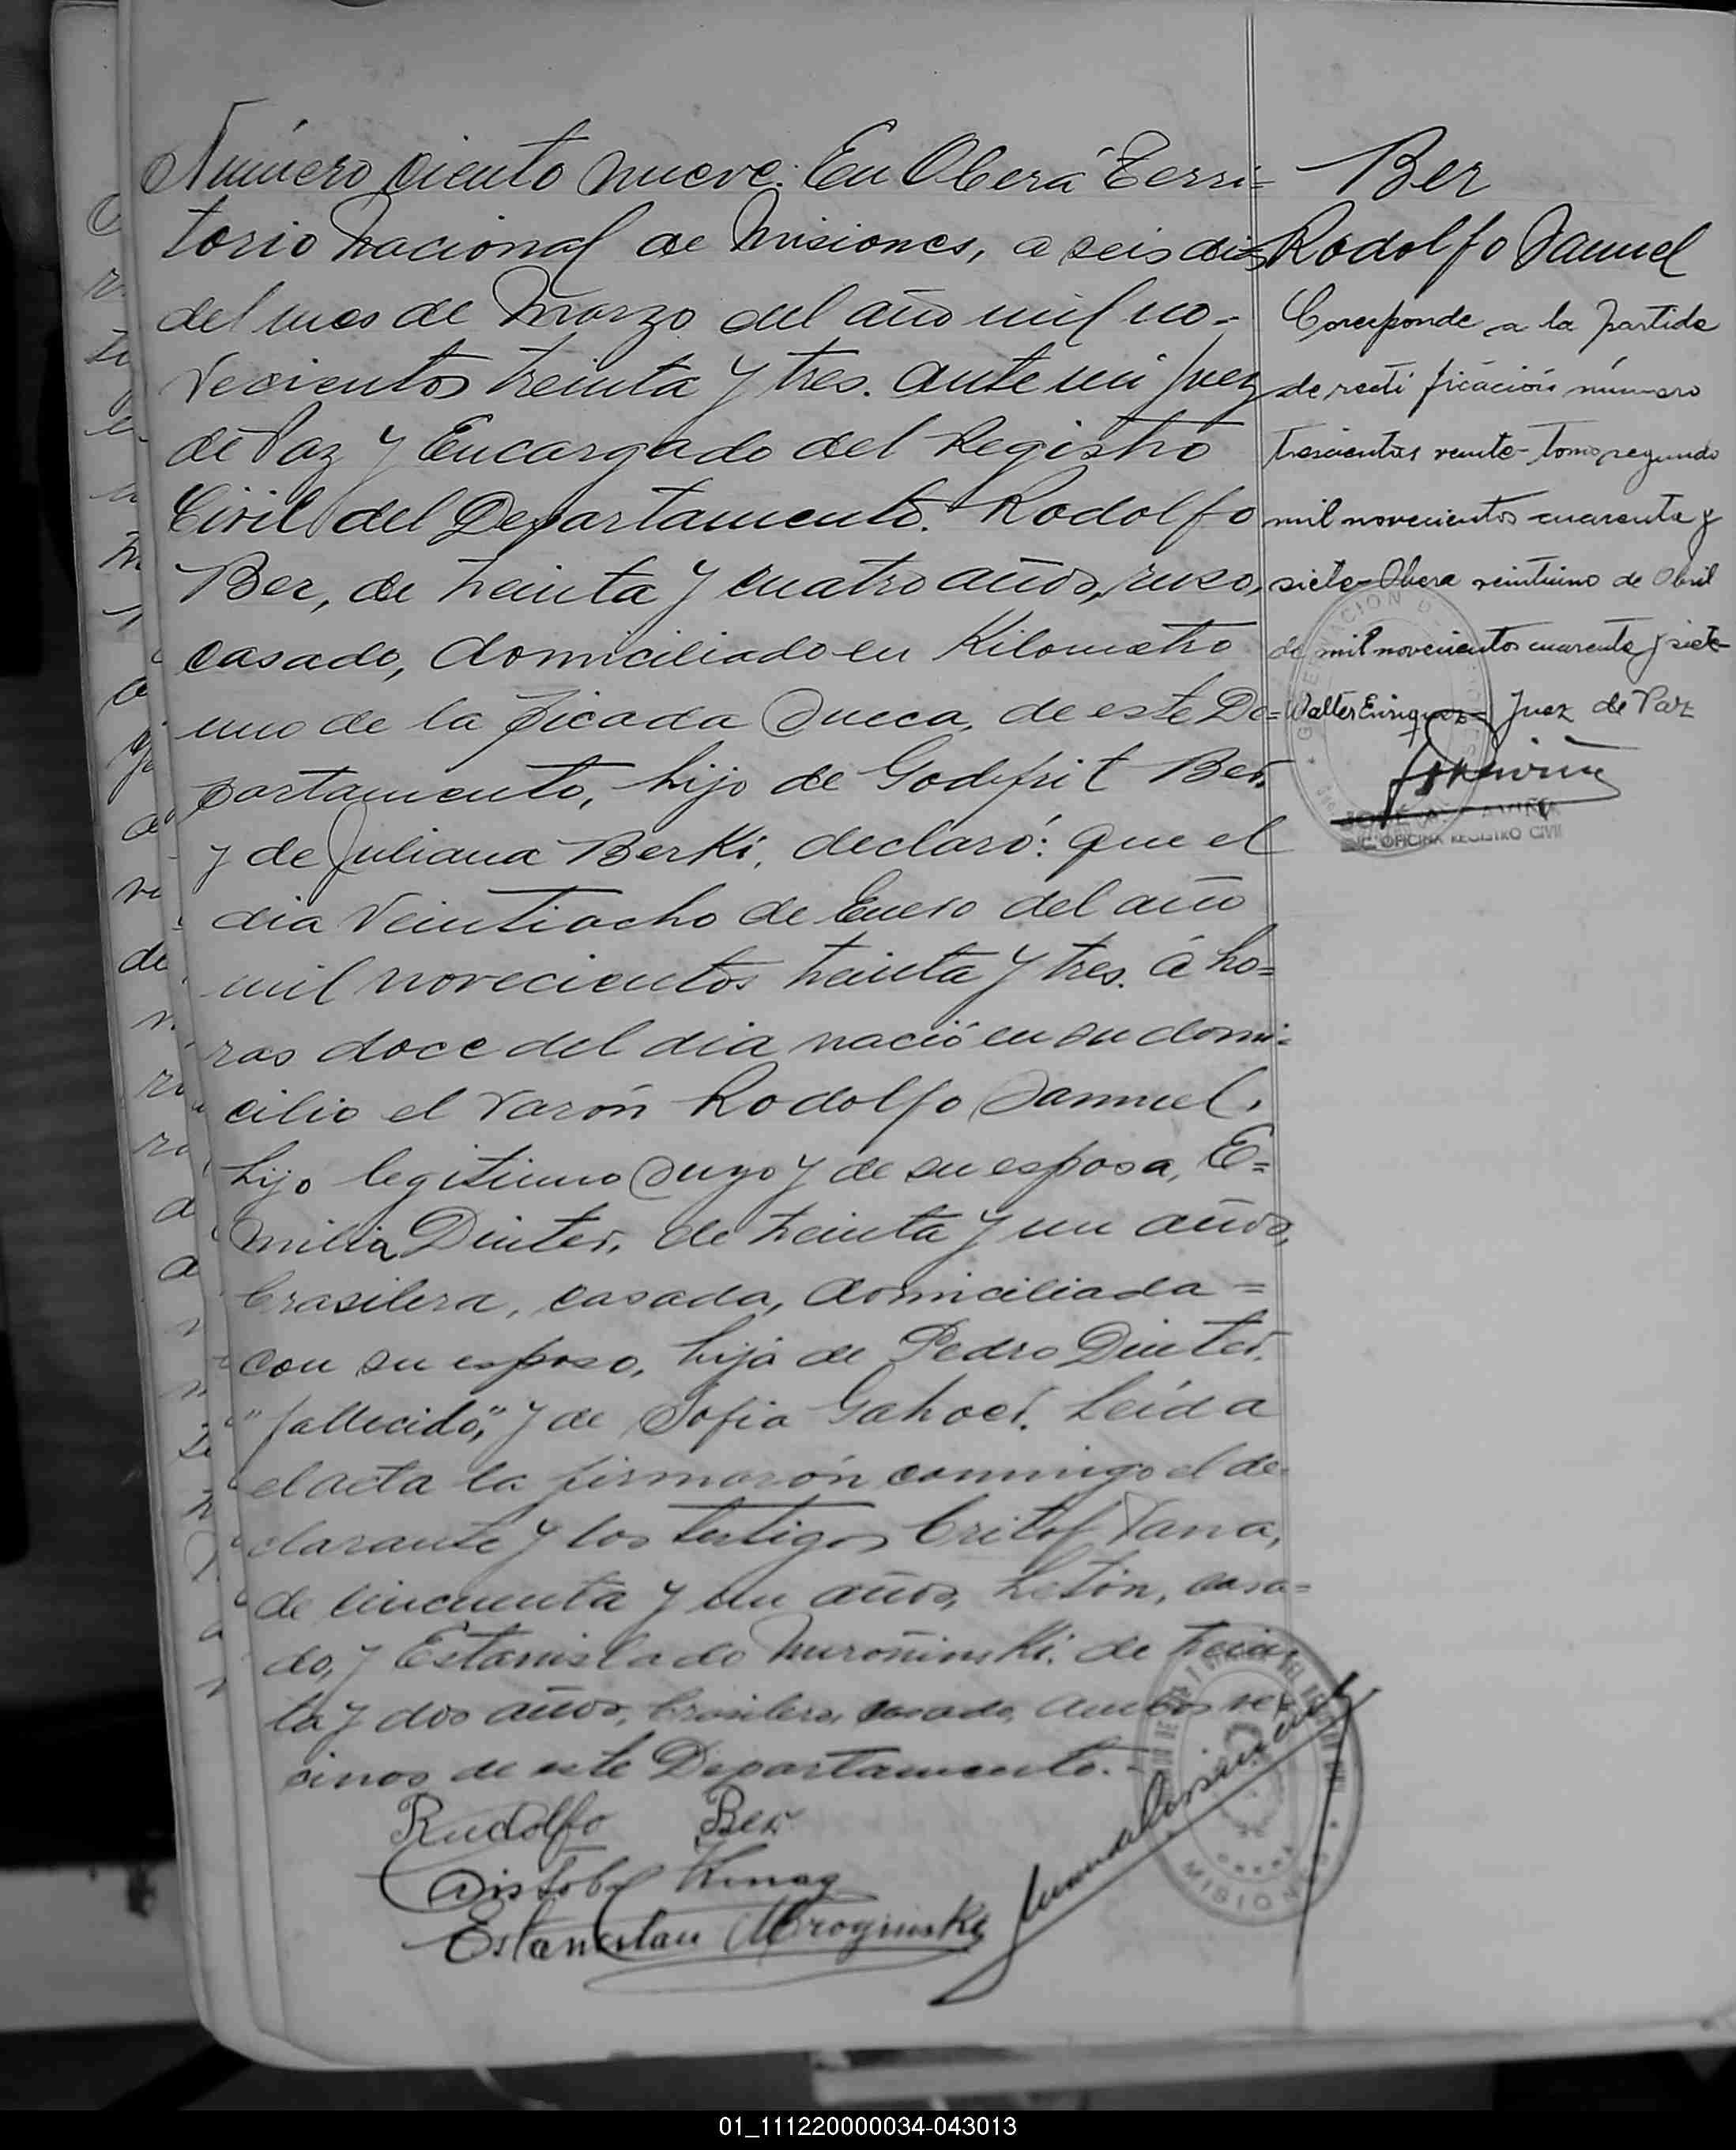 Número ciento nueve. En Oberá Terri=
torio Nacional de Misiones, a seis dias
del mes de Marzo del año mil no-
vecientos treinta y tres. ante mi Juez
de Paz y Encargado del Registro
Civil del Departamento. Rodolfo
Ber, de treinta y cuatro años, ruso,
casado, domiciliado en Kilometro
uno de la picada Sueca, de este De=
partamento, hijo de Godifrit Ber,
y de Juliana Berki, declaró: que el
dia veintiocho de Enero del año
mil novecientos treinta y tres. á ho=
ras doce del dia nació en su domi=
cilio el varón Rodolfo Samuel,
hijo legitimo suyo y de su esposa, E=
milia Dinter, de treinta y un años,
brasilera, casada, domiciliada =
con su esposo, hija de Pedro Dinter,
"fallecido", y de Sofia Gahoer. Leída
el acta la firmarón conmigo el de-
clarante y los testigos Critof Vana,
de cincuenta y un años, Letón, casa=
do, y Estanislado Muroñinski, de trein-
ta y dos años, brasilero, casado, ambos ve-
cinos de este Departamento.-
Rudolfo Ber
Estanislau Mroginski
Ber
Rodolfo Samuel
Coresponde a la partida
de rectificación número
trescientos veinte - tomo segundo
mil novecientos cuarenta y
siete - Obera veintiuno de Abril
de mil novecientos cuarenta y siete
Walter Enriquez Juez de Paz
OFICINA REGISTRO CIVIL
MISIONES
01_111220000034-043013